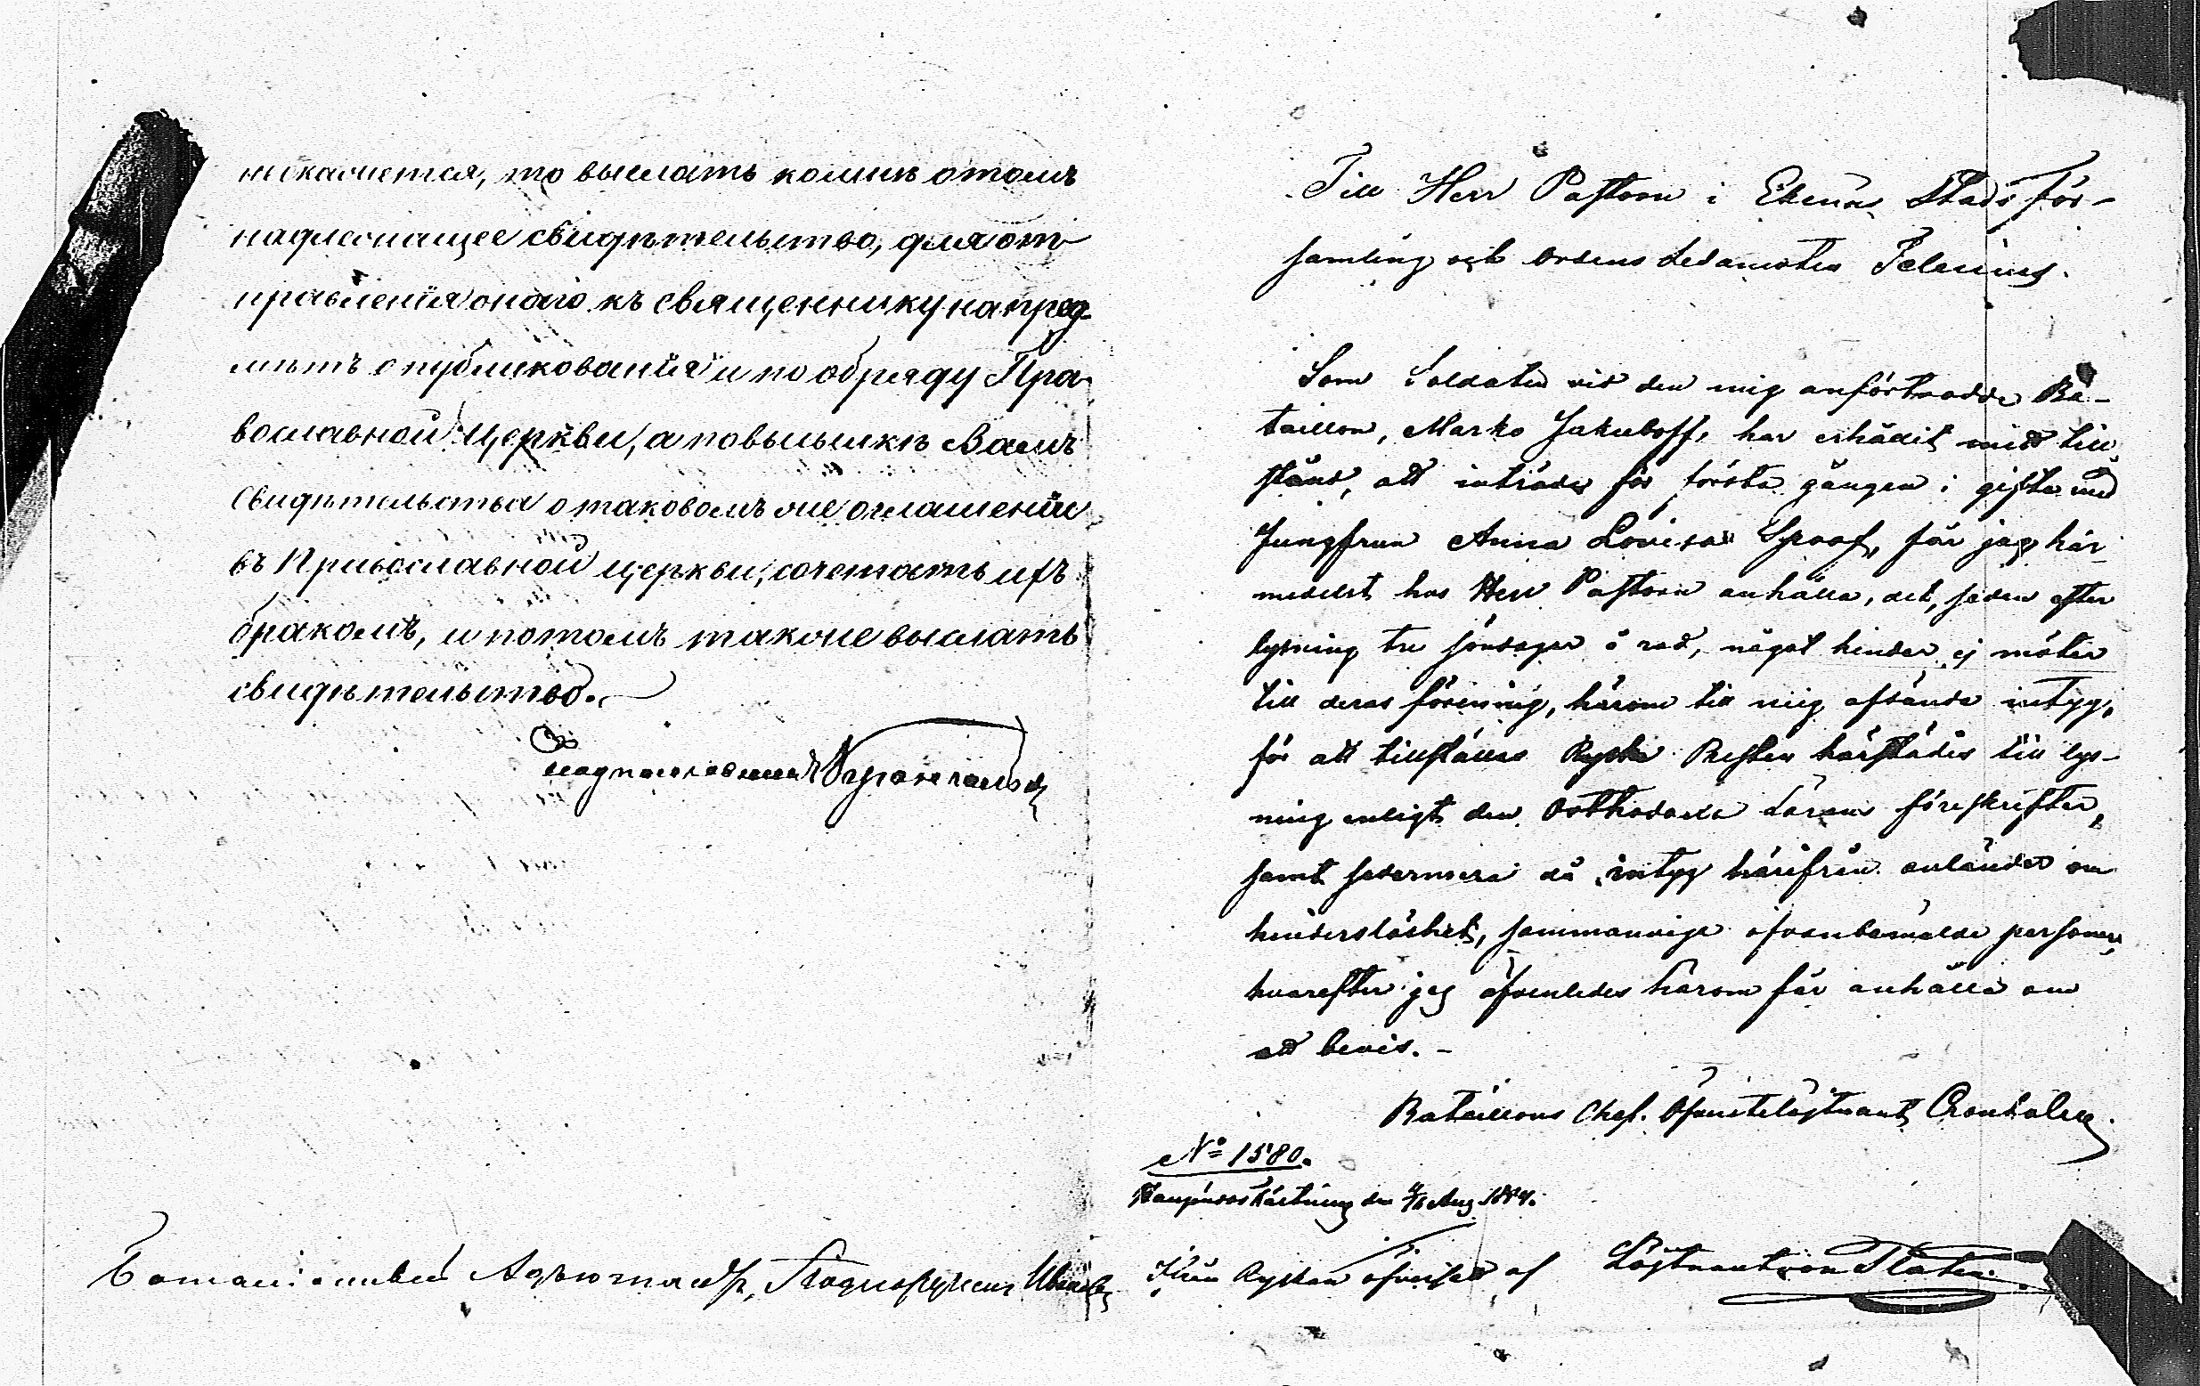 не окажется, то выслать ко мнѣ о томъ
надлежащее свидѣтельство, для от-
правленія онаго къ священнику на пред-
мѣтъ опубликованія и по обряду Пра-
вославной Церкви, а по высылкѣ Вамъ
свидѣтельства о таковомъ же оглашеніи
въ Православной церкви, сочетать ихъ
бракомъ, и потомъ также выслать
свидѣтельство.
Подполковникъ
Баталіонный Адъютантъ, Подпоручикъ
Till Herr Pastorn i Ekenäs Stads För-
samling och Ordens Ledamoten Telenius.
Som Soldaten vid den mig anförtrodde Ba-
taillon, Marko Jakuboff, har erhållit mitt till-
stånd, att inträda för första gången i gifte med
Jungfrun Anna Lovisa Sproof, får jag här-
medelst hos Herr Pastorn anhålla, det, sedan efter
lysning tre söndagar å rad, något hinder ej möter
till deras förening, härom till mig afsända intyg,
för att tillställas Ryska Presten härstädes till lys-
ning enligt den Orthodoxa Lärans föreskrifter,
samt sedermera då intyg härifrån anländer om
hinderslöshet, sammanviga ofvanbemälde personer,
hvarefter jag äfvenledes härom får anhålla om
ett bevis. -
Bataillons Chef. Öfverstelöjtnant
No 1580.
den Aug. 1884.
Från Ryskan öfversatt af Löjtnant von Platen.